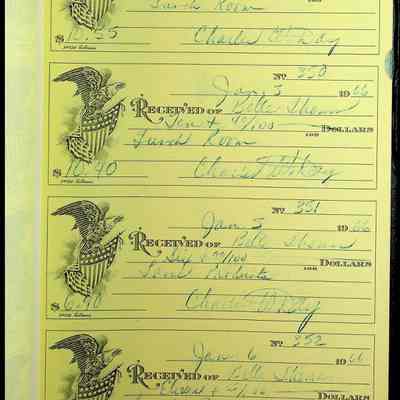 Lunch Room 100
$ 10.35 Charles W. Day
No 350
Jan. 3 1966
Received of Belle Sherman
Ten + 40/100 100 Dollars
Lunch Room
$ 10.40 Charles W. Day
No 351
Jan. 5 1966
Received of Belle Sherman
Six + 90/100 100 Dollars
$ 6.90 Charles W. Day
No 352
Jan 6 1966
Received of Belle Sherman
Eleven + /100 100 Dollars